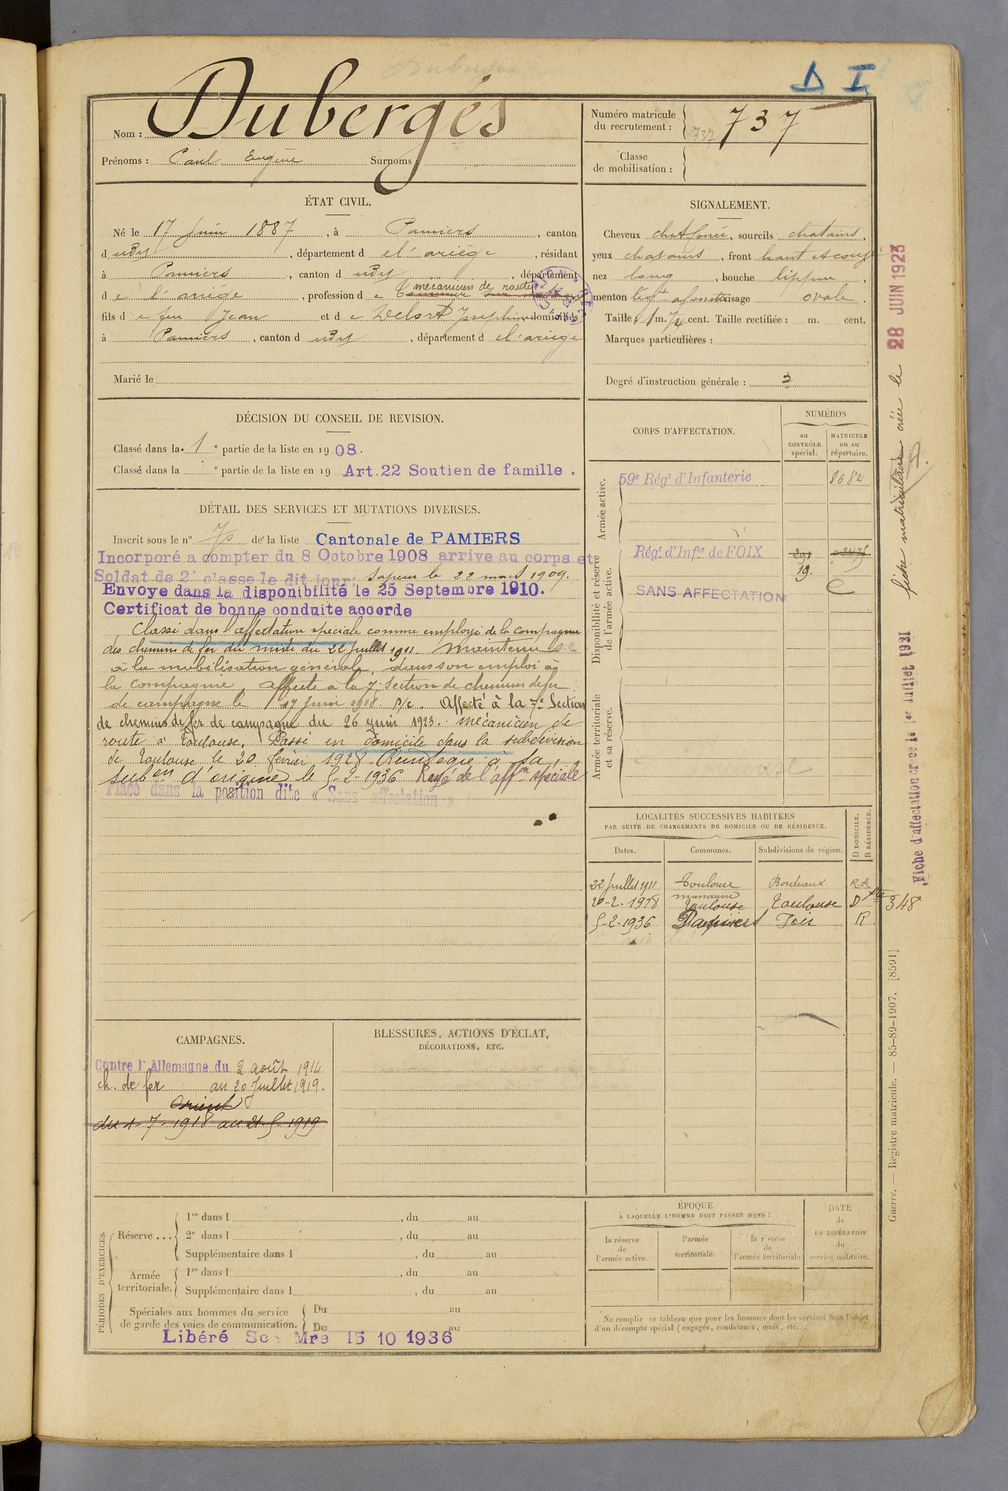 D I
Nom : Dubergés
Prénoms : Paul Eugène Surnoms :
Numéro matricule du recrutement : 737 737
Classe de mobilisation :
ÉTAT CIVIL.
Né le 17 Juin 1887, à Pamiers, canton
d udy, département d e l'ariège, résidant
à Pamiers, canton d udy, département
mécanicien de route
d e l'ariège, profession d e
fils d e feu Jean et d e Delort domiciliés
à Pamiers, canton d udy, département d e l'ariège
Marié le
SIGNALEMENT.
Cheveux, sourcils chatains,
yeux chatains, front haut
nez long, bouche lippue,
menton visage ovale.
Taille : 1 m. 74 cent. Taille rectifiée : m. cent.
Marques particulières :
Degré d'instruction générale : 3
DÉCISION DU CONSEIL DE REVISION.
Classé dans la 1e partie de la liste en 1908.
Classé dans la e partie de la liste en 19 Art.22 Soutien de famille.
DÉTAIL DES SERVICES ET MUTATIONS DIVERSES.
Inscrit sous le n° de la liste Cantonale de PAMIERS
Incorporé a compter du 8 Octobre 1908 arrive au corps et
Soldat de 2e classe le dit jour; Sapeur le 22 mars 1909.
Envoye dans la disponibilité le 25 Septembre 1910.
Certificat de bonne conduite accorde
Classé dans l'affectation spéciale comme employé de la Compagnie
des chemins de fer du midi du 22 juillet 1911 Maintenu
à la mobilisation générale, dans son emploi à
la compagnie, affecté à la 7e Section de chemins de fer
de campagne le 17 Juin 1918 P/c. Affecté à la 7e Section
de chemins de fer de campagne du 26 juin 1923. mécanicien de
route à Toulouse. Passé en domicile dans la subdivision
de Toulouse le 20 février 1928 Réintégré à sa
subon d'origine le 5-2-1936 Rayé de l'affon spéciale
Placé dans la position dite « Sans affectation »
CORPS D'AFFECTATION.
NUMÉROS
au CONTRÔLE spécial.
MATRICULE ou au répertoire.
Armée active.
59e Régt d'Infanterie 8682
Disponibilité et réserve de l'armée active.
Régt d'Infie de FOIX
SANS AFFECTATION
Armée territoriale et sa réserve.
LOCALITÉS SUCCESSIVES HABITÉES
PAR SUITE DE CHANGEMENTS DE DOMICILE OU DE RÉSIDENCE.
Dates. Communes. Subdivisions de région. D DOMICILE. R RÉSIDENCE.
22 juillet 1911 Toulouse Bordeaux R.A.
20-2-1928 Toulouse Toulouse D 348
5-2-1936 Pamiers Foix R
CAMPAGNES.
Contre l'Allemagne du 2 août 1914
ch. de fer au 20 Juillet 1919.
Orient
du 1-7-1918 au 21-5-1919
BLESSURES, ACTIONS D'ÉCLAT,
DÉCORATIONS, ETC.
PÉRIODES D'EXERCICES.
Réserve ...
1re dans l , du au
2e dans l , du au
Supplémentaire dans l , du au
Armée territoriale.
1re dans l , du au
Supplémentaire dans l , du au
Spéciales aux hommes du service de garde des voies de communication.
Du au
Du au
Libéré Sce Mre 15 10 1936
ÉPOQUE
À LAQUELLE L'HOMME DOIT PASSER DANS :
la réserve de l'armée active.
l'armée territoriale.
la réserve de l'armée territoriale
DATE de LA LIBÉRATION du service militaire.
Ne remplir ce tableau que pour les hommes dont les services font l'objet
d'un décompte spécial (engagés, condamnés, omis, etc.
fiche matriculaire créée le 28 JUIN 1923
Fiche d'affectation créée le 1er Juillet 1931
Guerre. — Registre matricule. — 85-89-1907. [8591]